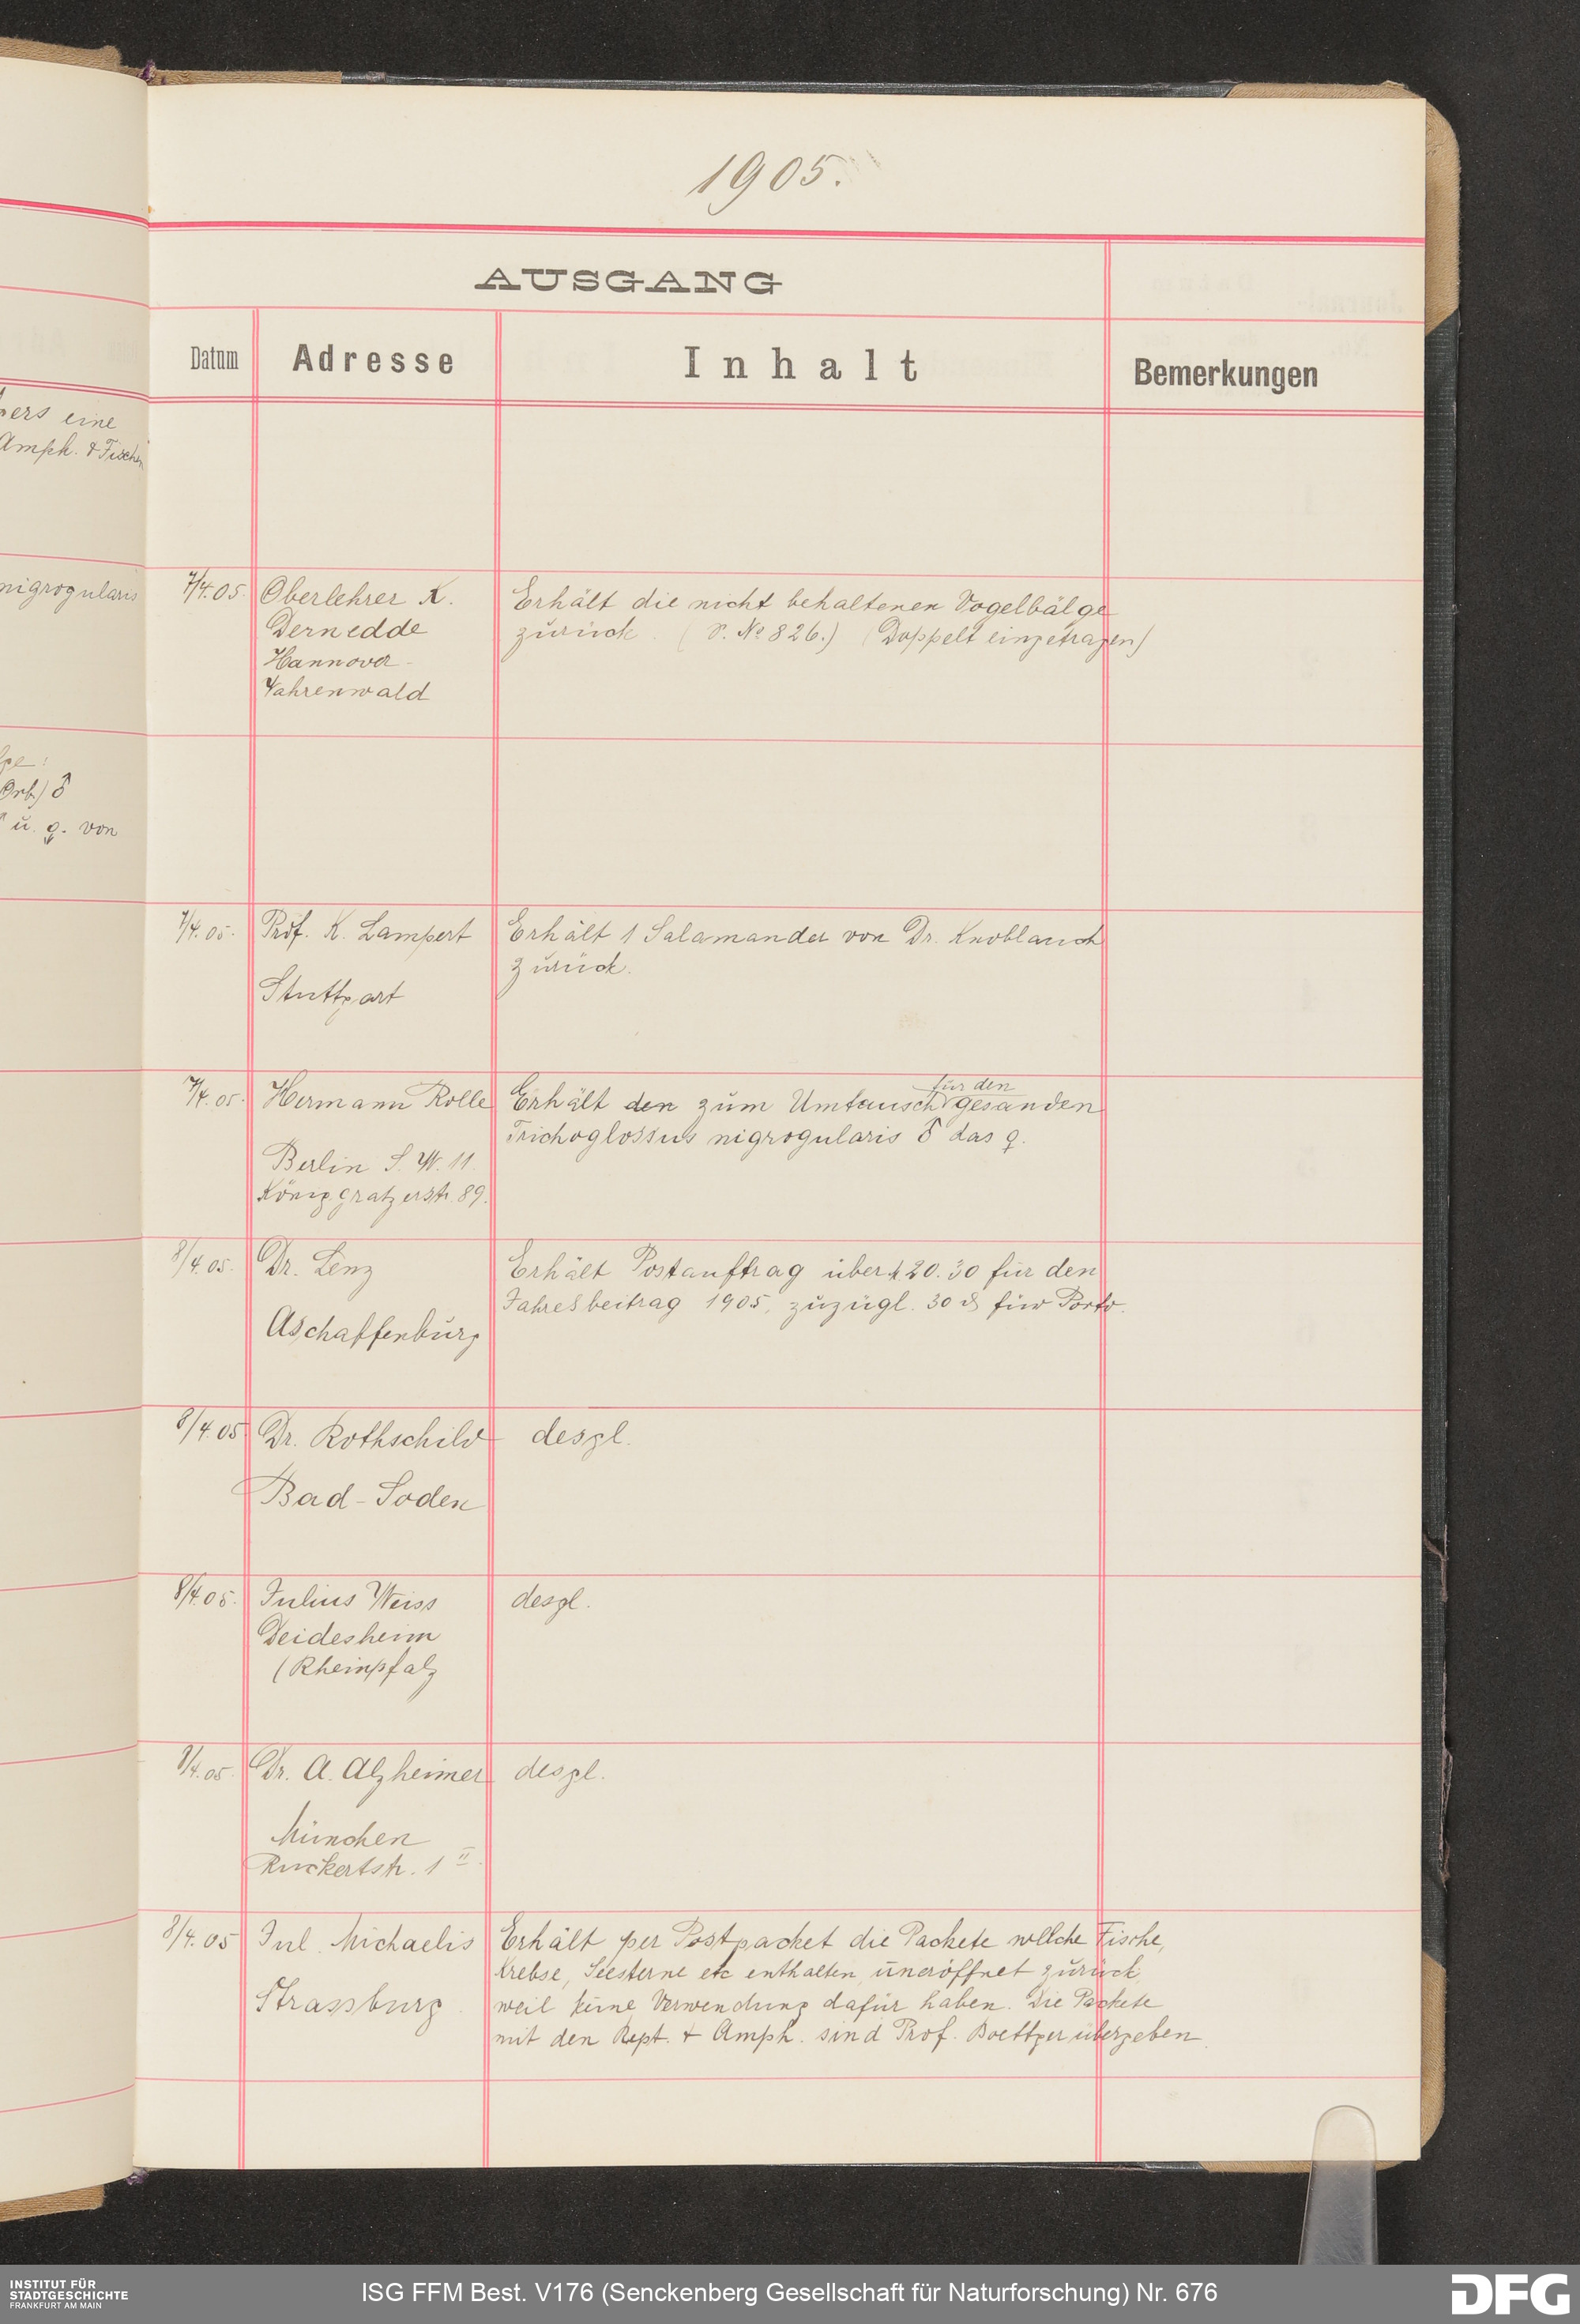 1905.
AUSGANG
Datum Adresse Inhalt Bemerkungen
pers eine
Amph. & Fischen
nigrogularis
Orb) ♂
u. ♀. von
7/4.05. Oberlehrer K. Erhält die nicht behaltenen Vogelbälge
Dernedde zurück. (S. No 826.) (Doppelt eingetragen)
Hannover-
Vahrenwald
7/4.05. Prof. K. Lampert Erhält 1 Salamander von Dr. Knoblauch
zurück.
Stuttgart
für den
7/4.05. Hermann Rolle Erhält den zum Umtausch gesanden
Trichoglossus nigrogularis ♂ das ♀.
Berlin S.W. 11.
Königgratzerstr. 89.
8/4.05. Dr. Lenz Erhält Postauftrag über M 20.30 für den
Jahresbeitrag 1905, zuzügl. 30 ₰ für Porto.
Aschaffenburg
8/4.05 Dr. Rothschild desgl.
Bad-Soden
8/4.05. Julius Weiss desgl.
Deidesheim
(Rheinpfalz
8/4.05. Dr. A. Alzheimer desgl.
München
Rückertstr. 1 II.
8/4.05 Jul. Michaelis Erhält per Postpacket die Packete wellche Fische,
Krebse, Seesterne etc enthalten, uneröffnet zurück,
Strassburg. weil keine Verwendung dafür haben. Die Packete
mit den Rept. & Amph. sind Prof. Boettger übergeben.
INSTITUT FÜR
STADTGESCHICHTE
FRANKFURT AM MAIN
ISG FFM Best. V176 (Senckenberg Gesellschaft für Naturforschung) Nr. 676
DFG